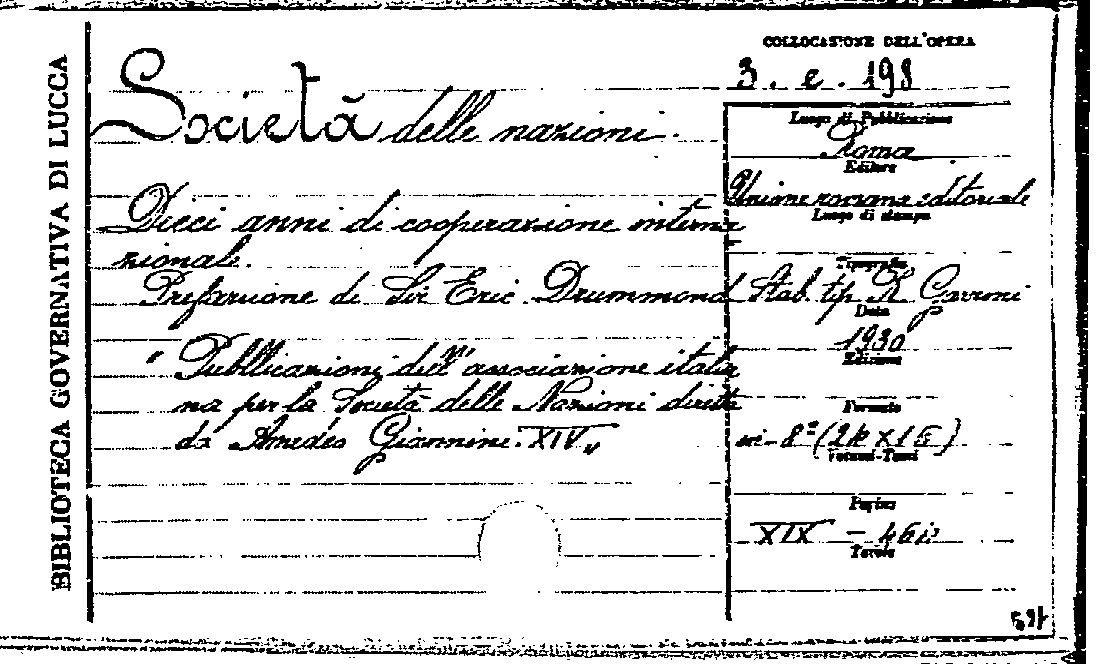 BIBLIOTECA GOVERNATIVA DI LUCCA
COLLOCAZIONE DELL'OPERA
3. e. 198
Società delle nazioni.
Dieci anni di cooperazione interna
zionale.
Prefazione di Sir Eric Drummond
" Pubblicazioni dell'associazione italia
na per la Società delle Nazioni dirette
da Amedeo Giannini. XIV"
Luogo di Pubblicazione
Roma
Editore
Unione romana editoriale
Luogo di stampa
Tipografia
Stab. tip. R. Garroni
Data
1930
Edizione
Formato
in-8º (24 x 16)
Volumi-Tomi
Pagine
XIX -
Tavole